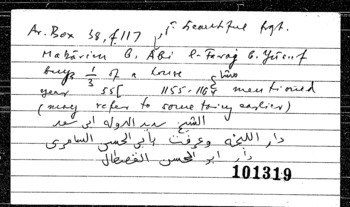 Ar. Box 38, f. 117 beautiful fgt.
Makārim b. Abi l-Farag b. Yūsuf
buys 1/3 of a house مشاع
year 55[ 1155-1164 mentioned
(may refer to something earlier)
الشيخ سعيد الدولة ابي سعد
دار اللبخة وعرفت بأبي الحسن السامري
دار ابو الحسن القصطال
101319